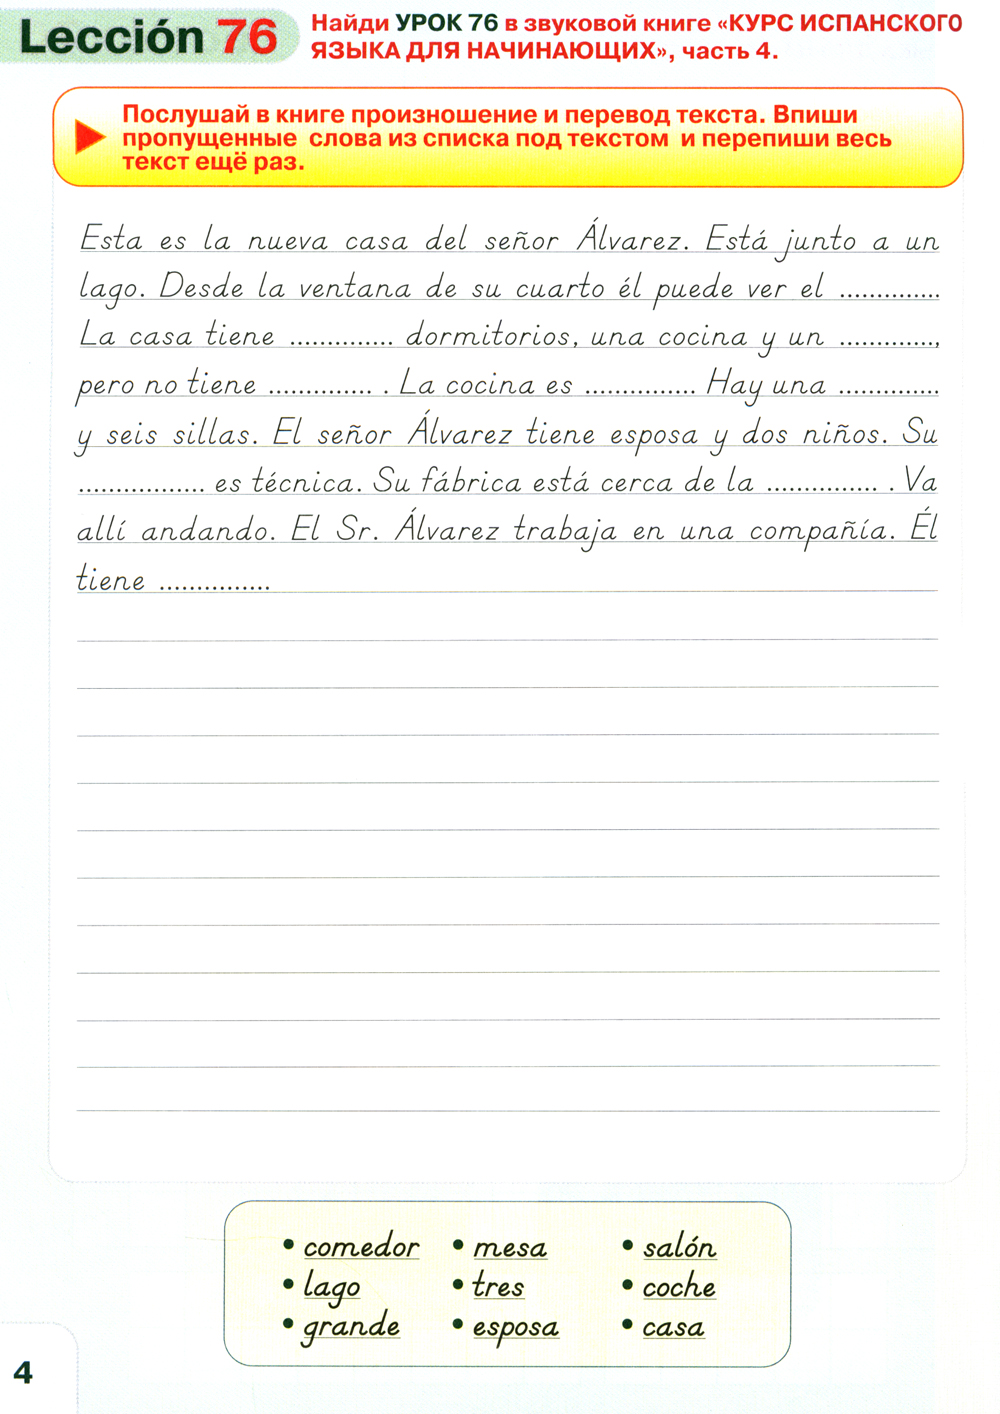 Lección 76
Найди УРОК 76 в звуковой книге «КУРС ИСПАНСКОГО
ЯЗЫКА ДЛЯ НАЧИНАЮЩИХ», часть 4.
Послушай в книге произношение и перевод текста. Впиши
пропущенные слова из списка под текстом и перепиши весь
текст ещё раз.
Esta es la nueva casa del señor Álvarez. Está junto a un
lago. Desde la ventana de su cuarto él puede ver el ..............
La casa tiene .............. dormitorios, una cocina y un .............,
pero no tiene .............. . La cocina es ............... Hay una ..............
y seis sillas. El señor Álvarez tiene esposa y dos niños. Su
................. es técnica. Su fábrica está cerca de la ............... . Va
allí andando. El Sr. Álvarez trabaja en una compañía. Él
tiene ...............
• comedor • mesa • salón
• lago • tres • coche
• grande • esposa • casa
4